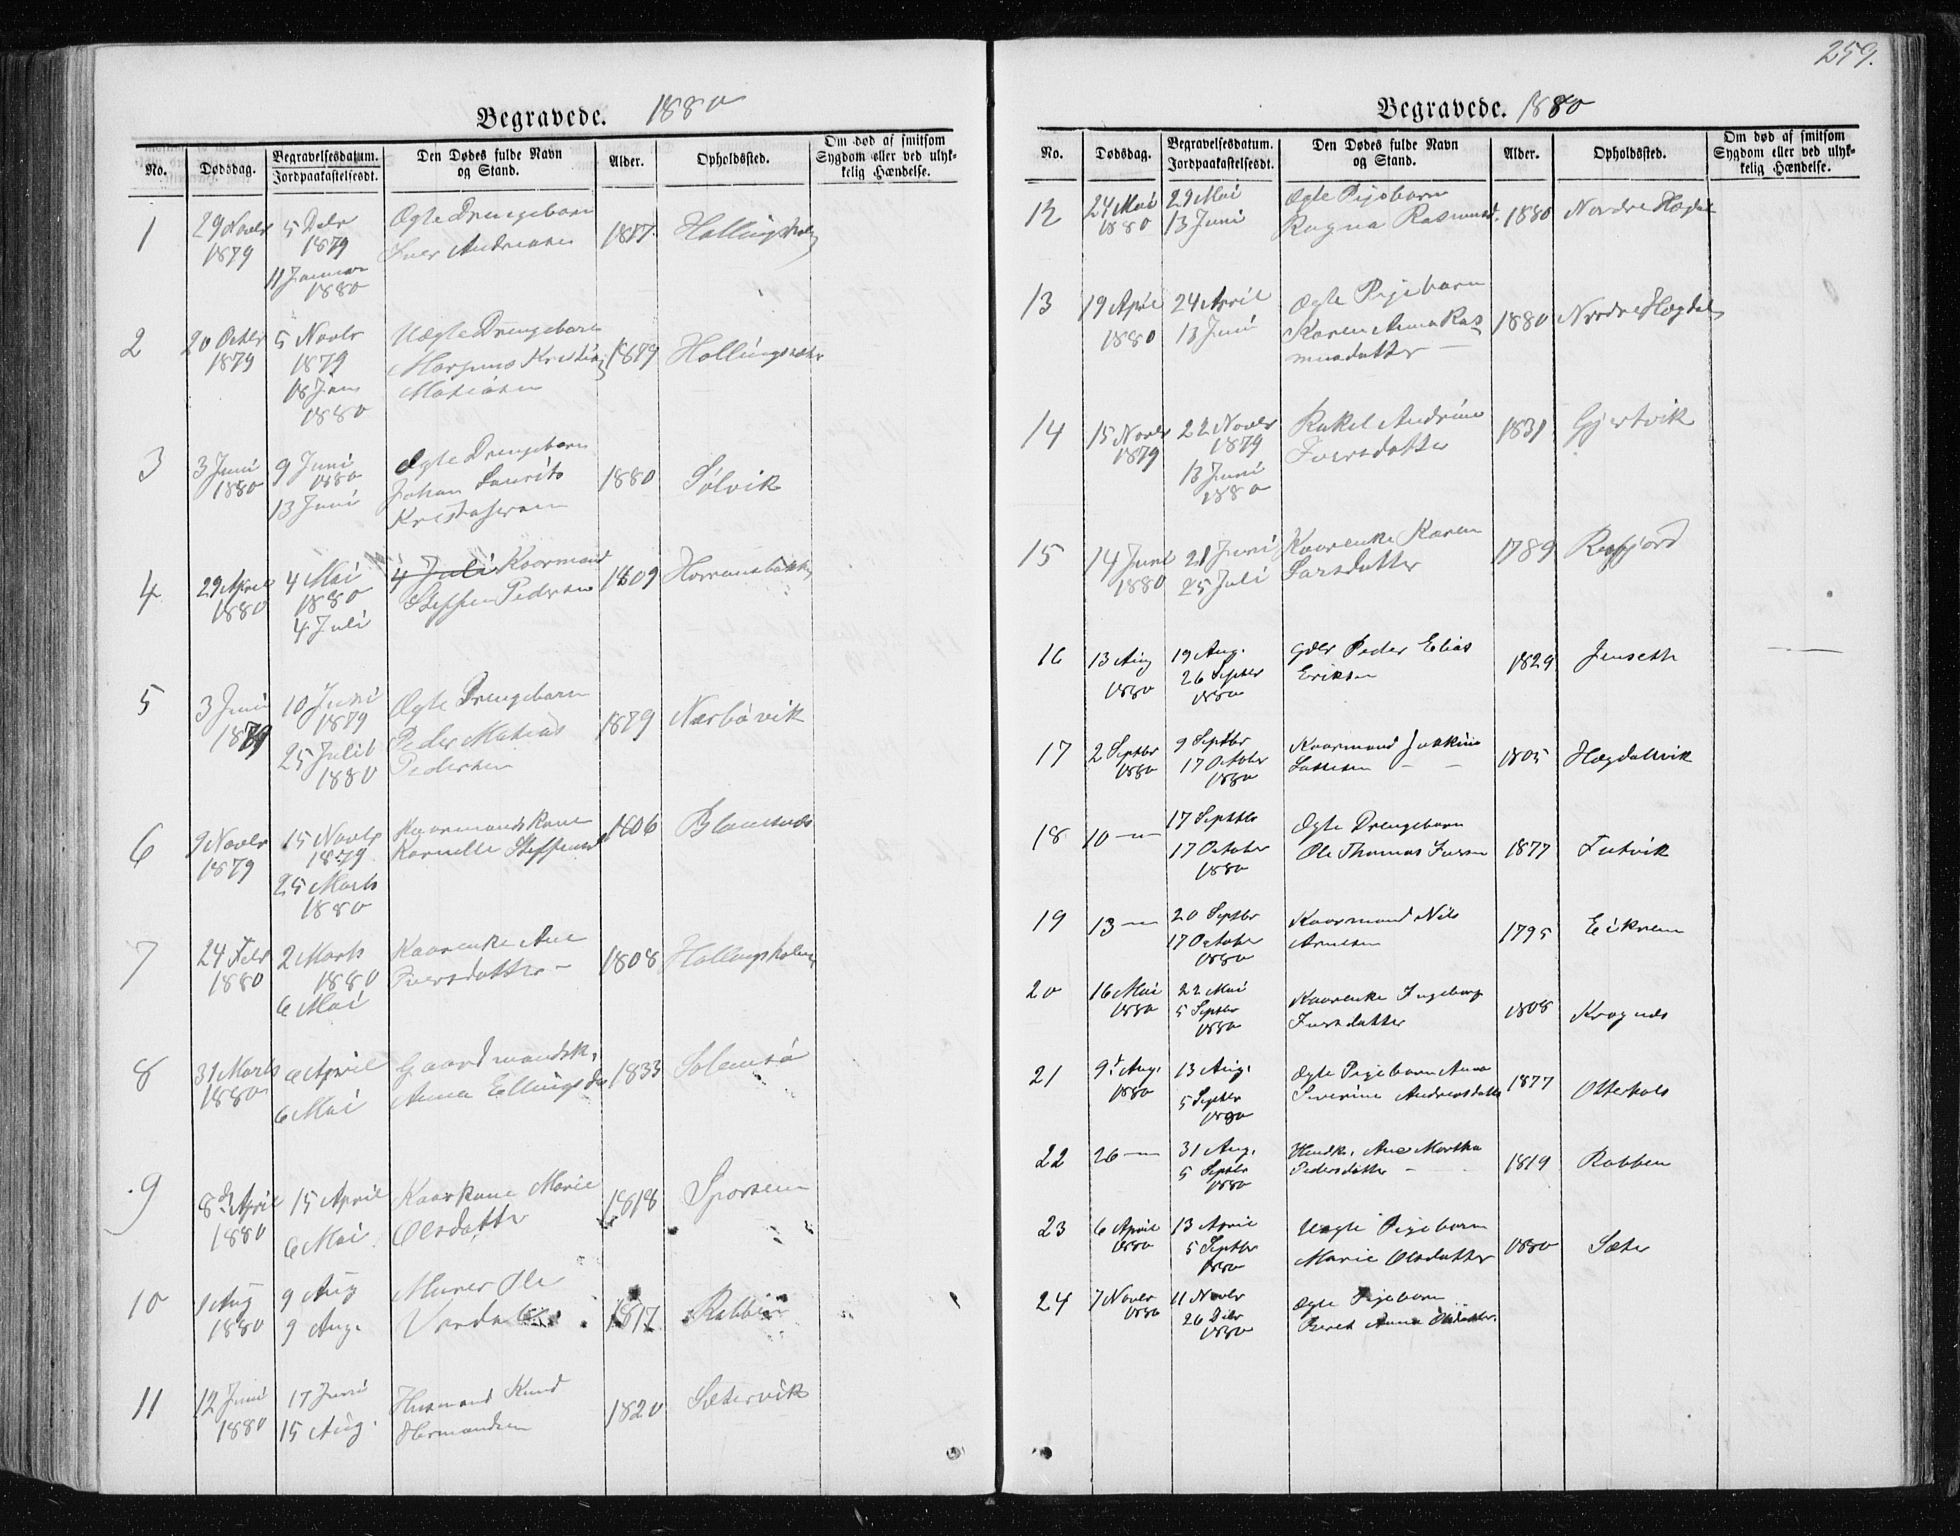 Begravede. 1880
No.
Dødsdag.
Begravelsesdatum.
Jordpaakastelsesdt.
Den Dødes fulde Navn
og Stand.
Alder.
Opholdssted.
Om død af smitsom
Sygdom eller ved ulyk-
kelig Hændelse.
1
29 Novbr
1879
5 Debr
1879
11 Januar
1880
Ægte Drengebarn
Iver Andreasen
1877
Hallingsholm
2
20 Octbr
1879
5 Novbr
1879
18 Jan
1880
Uægte Drengebarn
Kristian
Matiasen
1879
3
3 Juni
1880
9 Juni
1880
13 Juni
Ægte Drengebarn
Johan Laurits
Kristofersen
1880
Sølvik
4
29 April
1880
4 Mai
1880
4 Juli
4 Juli Kaarmand
Steffen Pedersen
1809
5
3 Juni
1879
10 Juni
1879
25 Juli
1880
Ægte Drengebarn
Peder Matias
Pedersen
1879
Nærbøvik
6
9 Novbr
1879
15 Novbr
1879
25 Marts
1880
Kaarmandskone
Steffensd
1806
7
24 Febr
1880
2 Marts
1880
6 Mai
Kaarenke Ane
Iversdatter –
1808
Hallingsholmen
8
31 Marts
1880
6 April
6 Mai
Gaardmandsk.
Anna Ellingsdr
1833
Solemsø
9
8de April
1880
15 April
6 Mai
Kaarkone Marie
Olsdatter
1818
Sporsem
10
1 Aug
1880
9 Aug
9 Aug.
Murer Ole
1817
Rabben
11
12 Juni
1880
17 Juni
15 Aug.
Husmand Knud
Hermandsen
1820
Sætervik
259.
Begravede. 1880
No.
Dødsdag.
Begravelsesdatum.
Jordpaakastelsesdt.
Den Dødes fulde Navn
og Stand.
Alder.
Opholdssted.
Om død af smitsom
Sygdom eller ved ulyk-
kelig Hændelse.
12
24 Mai
1880
29 Mai
13 Juni
Ægte Pigebarn
Ragna Rasmusd.
1880
Nordre Hægdal
13
19 April
1880
24 April
13 Juni
Ægte Pigebarn
Karen Anna Ras
musdatter –
1880
Nordre Hægdal
14
15 Novbr
1879
22 Novbr
1879
13 Juni
1880
Rakel Andrine
Iversdatter
1831
Gjertvik
15
14 Juni
1880
21 Juni
25 Juli
Kaarenke Karen
Larsdatter
1789
16
13 Aug
1880
19 Aug.
26 Septbr
1880
Gdbr Peder Elias
Eriksen
1829
Jenseth
17
2 Septbr
1880
9 Septbr
17 October
1880
Kaarmand
Lassesen – –
1805
Hægdalsvik
18
10 –"–
17 Septbr
17 October
1880
Ægte Drengebarn
Ole Thomas Iversen
1877
Futvik
19
13 –"–
20 Septbr
17 October
1880
Kaarmand Nils
Arnesen
1795
Eikrem
20
16 Mai
1880
22 Mai
5 Septbr
1880
Kaarenke Ingeborg
Iversdatter
1808
Kragnæs
21
9d Aug.
1880
13 Aug.
5 Septbr
1880
Ægte Pigebarn Anna
Severine Andersdatter
1877
Otterhals
22
26 –"–
31 Aug.
5 Septbr
1880
Husmk. Ane Martha
Pedersdatter –
1819
Rabben
23
6 April
1880
13 April
5 Septbr
1880
Uægte Pigebarn
Marie Olsdatter
1880
Sæter
24
7 Novbr
1880
11 Novbr
26 Debr
1880
Ægte Pigebarn
Beret Anna Olsdatter.